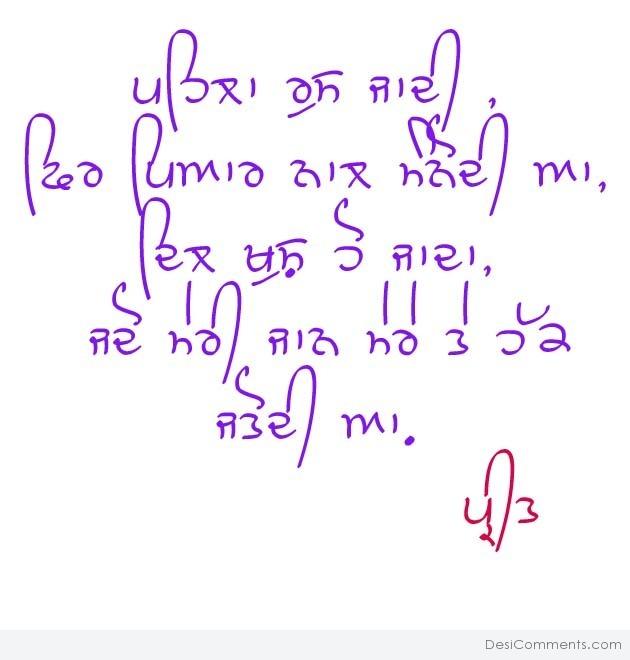 ਪਹਿਲਾ ਰੁਸ ਜਾਦੀ,
ਫਿਰ ਪਿਆਰ ਨਾਲ ਮਨੌਦੀ ਆ,
ਦਿਲ ਖੁਸ਼ ਹੋ ਜਾਦਾ,
ਜਦੋ ਮੇਰੀ ਜਾਨ ਮੇਰੇ ਤੇ ਹੱਕ
ਜਤੋਦੀ ਆ.
ਪ੍ਰੀਤ
DesiComments.com